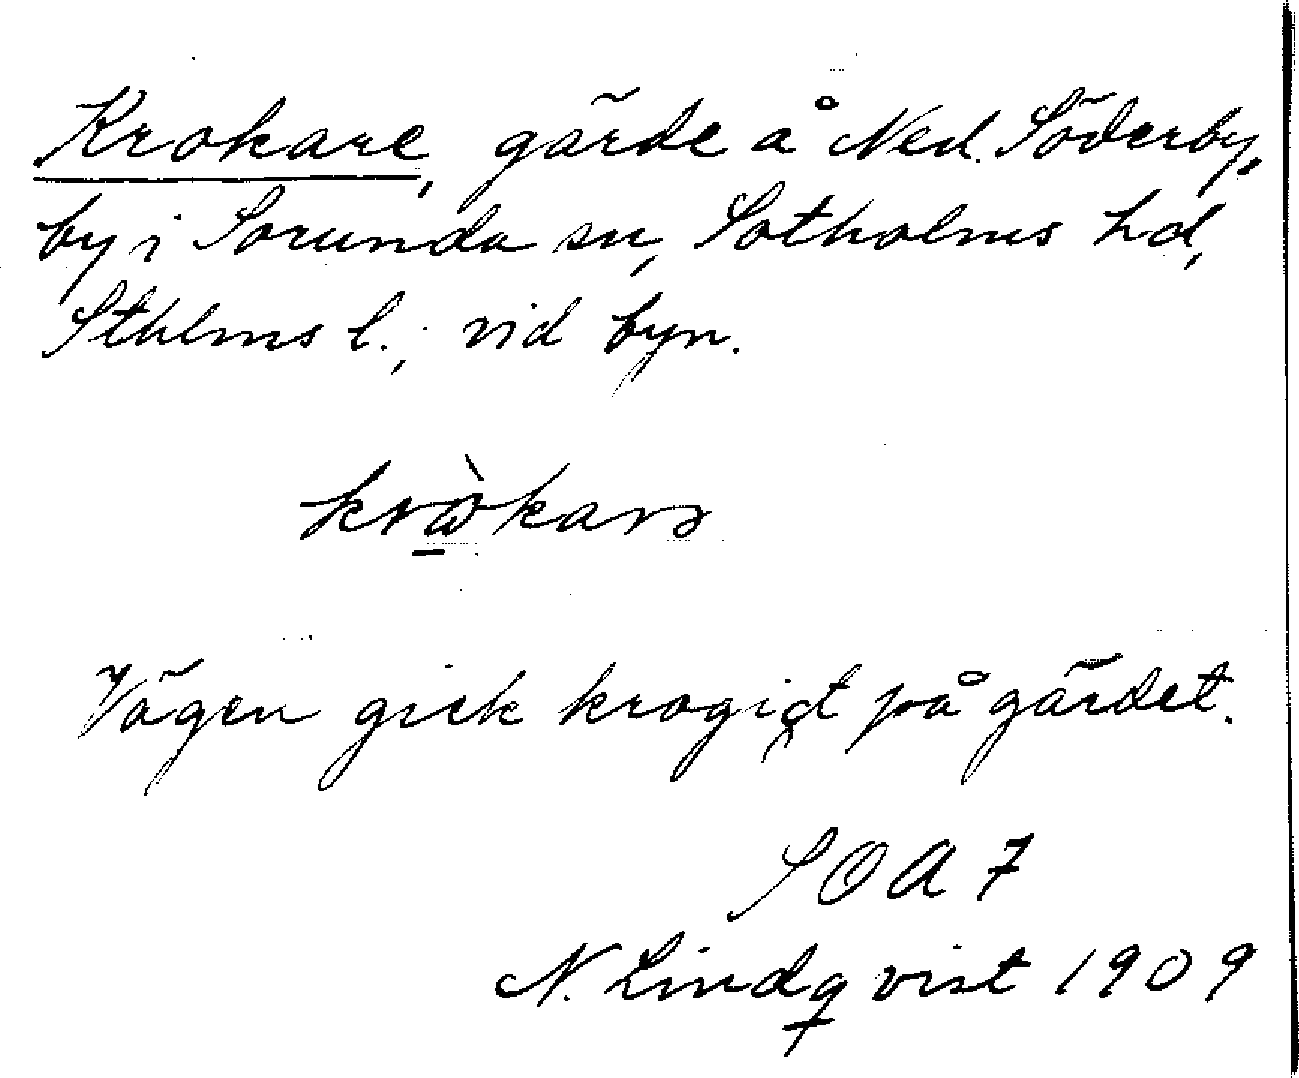 Krokare, gärde å Ned. Söderby,
by i Sorunda sn, Sotholms hd,
Sthlms l.; vid byn.
Vägen gick krogigt på gärdet.
SOA 7
N. Lindqvist 1909